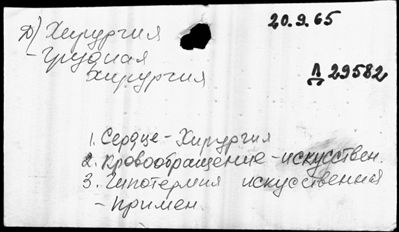 Д) Хирургия
20.9.65
- Грудная
хирургия
Л 29582
1. Сердце - Хирургия
2. Кровообращение - искусствен.
3. Гипотермия искусственная
- Примен.